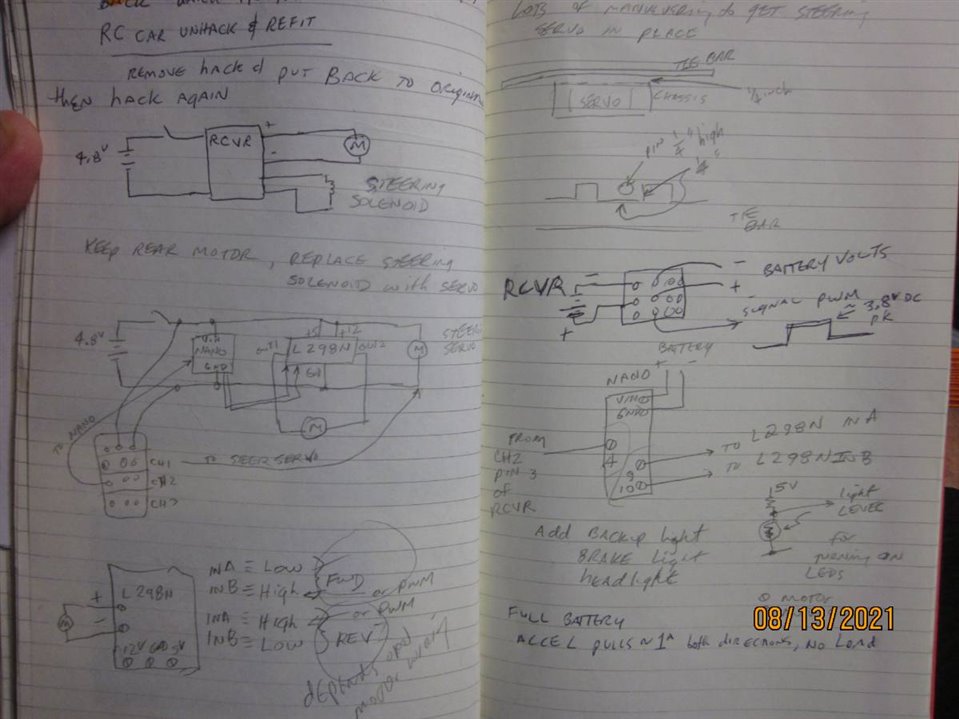 RC CAR UNHACK & REFIT
REMOVE hack & PUT BACK TO
then hack AGAIN
4.8V
RCVR
+
-
M
STEERING
SOLENOID
KEEP REAR MOTOR, REPLACE STEERING
SOLENOID with SERVO
4.8V
VIN
NANO
GND
+5 +12
OUT1 L298N OUT2
GND
M
STEER
SERVO
M
TO NANO
CH1
CH2
CH3
TO STEER SERVO
+
L298N
-
M
12V GND 5V
INA = LOW
INB = High
FWD
or PWM
INA = High
INB = LOW
or PWM
REV
depends upon
motor wiring
LOTS of MANUEVERING to GET STEERING
SERVO IN PLACE
TIE BAR
SERVO
CHASSIS
1/4 inch
PIN 1/4" high
TIE
BAR
RCVR
-
+
- BATTERY VOLTS
+
SIGNAL PWM
3.8V DC
PK
BATTERY
+ -
NANO
VIN
GND
FROM
CH2
PIN 3
of
RCVR
4
9
10
TO L298N IN A
TO L298N IN B
5V
light
LEVEL
for
turning ON
LEDS
Add BACKUP light
BRAKE light
headlight
FULL BATTERY
MOTOR
ACCEL pulls ~1A both directions, NO LOAD
08/13/2021